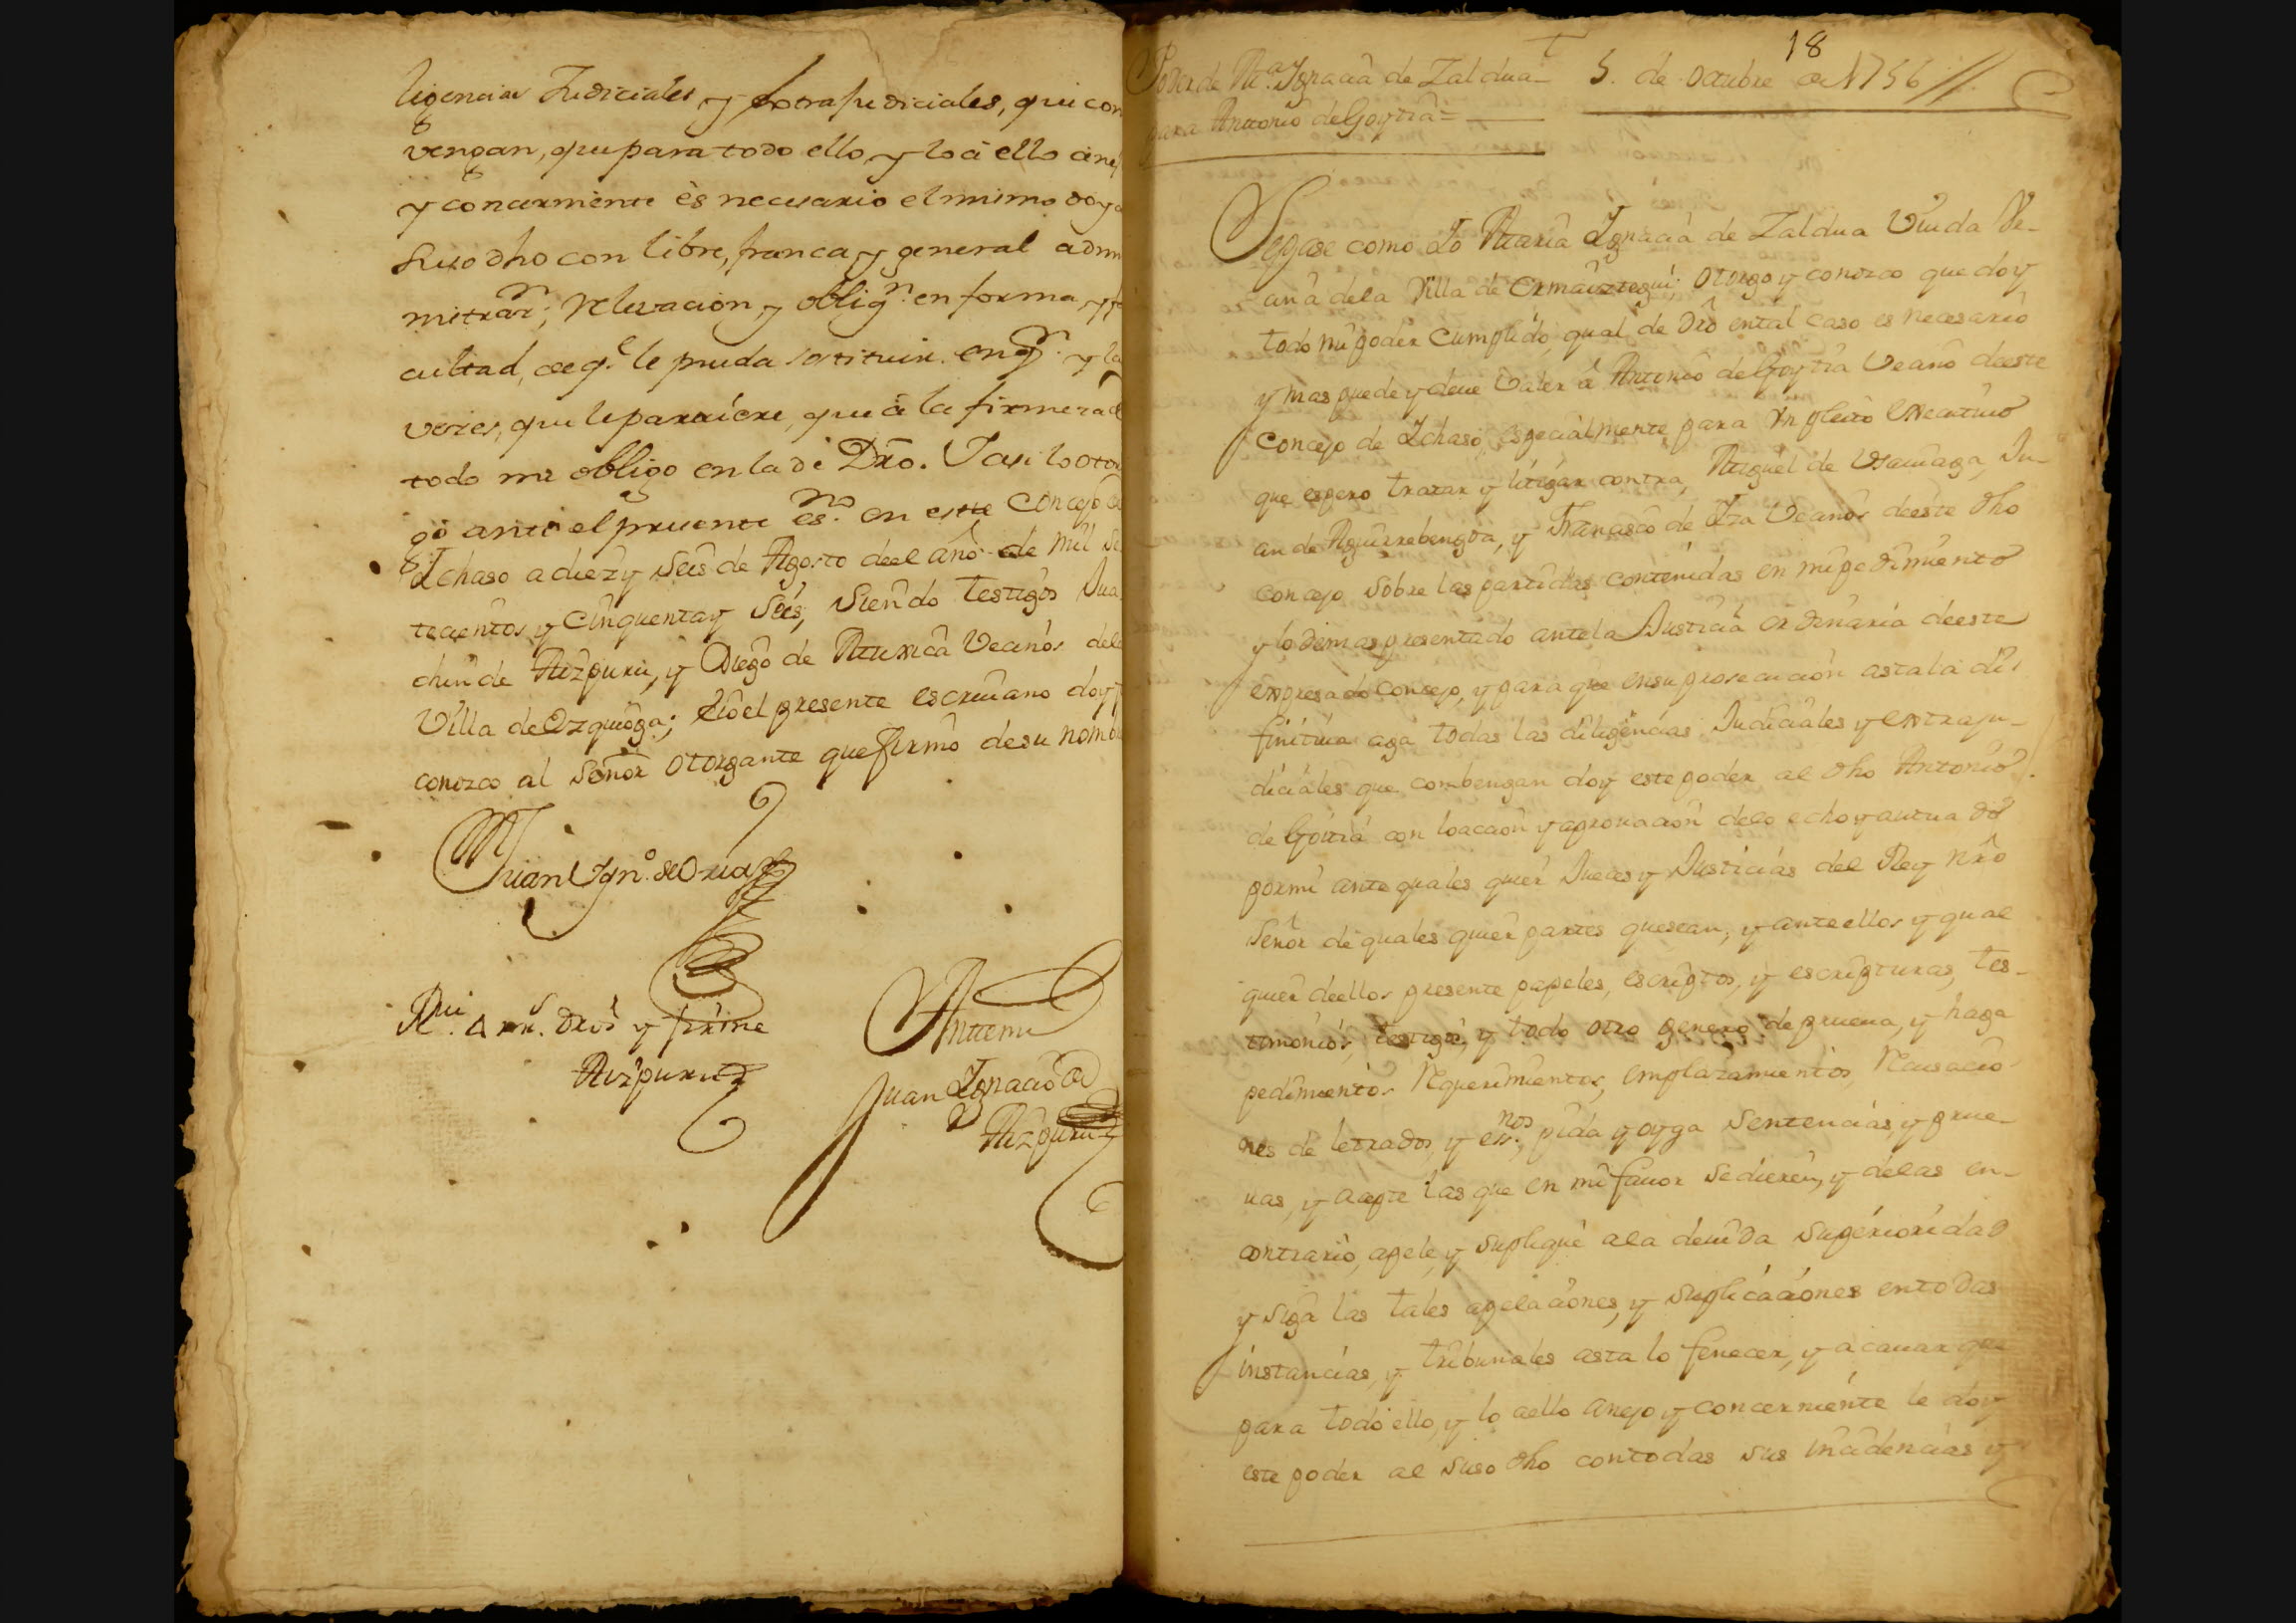 ligencias Judiciales y extrajudiciales, que con
vengan, que para todo ello y lo a ello anej
y concerniente es necesario el mismo doy a
Suso dho con libre, franca, y general admi
nistraon; relevacion, y obligon. en forma, y fa
cultad, de qe. le pueda sostituir en qn. y las
veces, que le pareciere, que à la firmeza de
todo me obligo en la de Dro. I asi lo otor
gó ante el presente esno. en este Concejo de
Ichaso a diez y Seis de Agosto de el año de mil Se
tecientos y Cinquenta y Seis, Siendo testigos Jua
chin de Aizpuru, y Diego de Muxica Vecinos de la
Villa de Ozquioga; Eio el presente escrivano doy f
conozco al Señor otorgante que firmó de su nomb
Juan Ign.o de Oria
Rui. Arr.s dros y firme
Aizpuru
Antemi
Juan Ignacio de
Aizpuru
18
Poder de Ma. Ignacia de Zaldua
para Antonio de Goytia =
5. de octubre de 1756 //
Sepase como Io Maria Ignacia de Zaldua Viuda Ve-
cina de la Villa de Ormaiztegui; otorgo y conozco que doy
todo mi poder cumplido, qual de Dro en tal caso es necesario
y mas puede y deve valer á Antonio de Goytia Vecino de este
Concejo de Ichaso, especialmente para Vn pleito executivo
que espero tratar y litigar contra, Miguel de Vsauiaga, Ju-
an de Aguirrebengoa, y Francisco de Iza Vecinos de este dho
concejo sobre las partidas contenidas en mi pedimiento
y lo demas presentado ante la Justicia ordinaria de este
expresado concejo, y para que en su prosecucion asta la di-
finitiva aga todas las diligencias Judiciales y extraju-
diciales que combengan doy este poder al dho Antonio
de Goitia con loacion y aprouacion de lo echo y autuado
por mi ante quales quier Jueces y Justicias del Rey Nro
Señor de quales quier partes que sean, y ante ellos y qual
quier de ellos presente papeles, escriptos, y escripturas, tes-
timonios, testigos, y todo otro genero de prueua, y haga
pedimientos Requerimientos, emplazamientos, Recusacio-
nes de letrados, y essnos, pida y oyga Sentencias, y prue-
uas, y acepte las que en mi fauor se dieren, y de las en-
contrario, apele, y suplique a la deuida superioridad
y siga las tales apelaciones, y suplicaciones en todas
instancias, y tribunales asta lo fenecer, y acauar que
para todo ello, y lo a ello anejo y concerniente le doy
este poder al suso dho con todas sus incidencias y